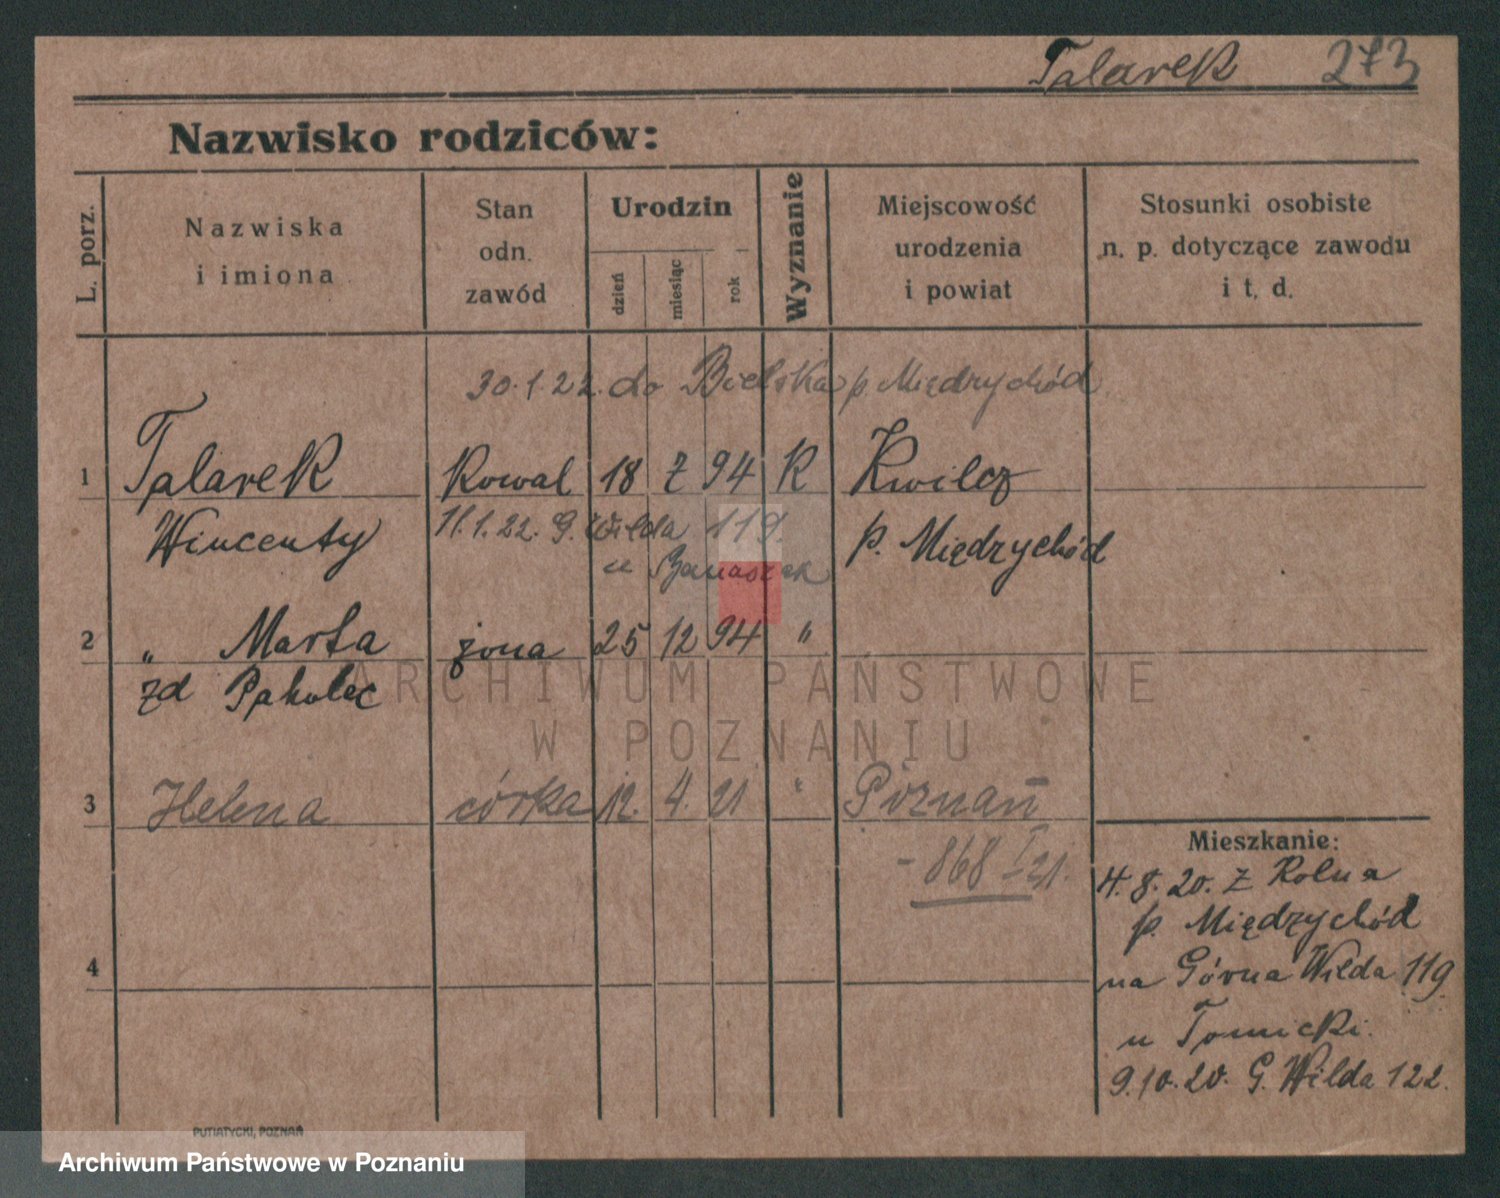 Talarek 273
Nazwisko rodziców:
L. porz.
Nazwiska
i imiona
Stan
odn.
zawód
Urodzin
dzień
miesiąc
rok
Wyznanie
Miejscowość
urodzenia
i powiat
Stosunki osobiste
n. p. dotyczące zawodu
i t. d.
30.1.22. do Bielska p. Międrzychód
1 Talarek Kowal 18 7 94 K Kwilcz
Wincenty p. Międrzychód
11.1.22. G. Wilda 119.
u Banaszak
2 " Marta żona 25 12 94 "
zd
ARCHIWUM PAŃSTWOWE
W POZNANIU
3 Helena córka 12. 4. 21 " Poznań
- 868 I 21.
Mieszkanie:
4. 8. 20. z Kolna
p. Międrzychód
na Górna Wilda 119
u Tomicki.
9.10.20. G. Wilda 122.
4
PUTIATYCKI, POZNAŃ
Archiwum Państwowe w Poznaniu